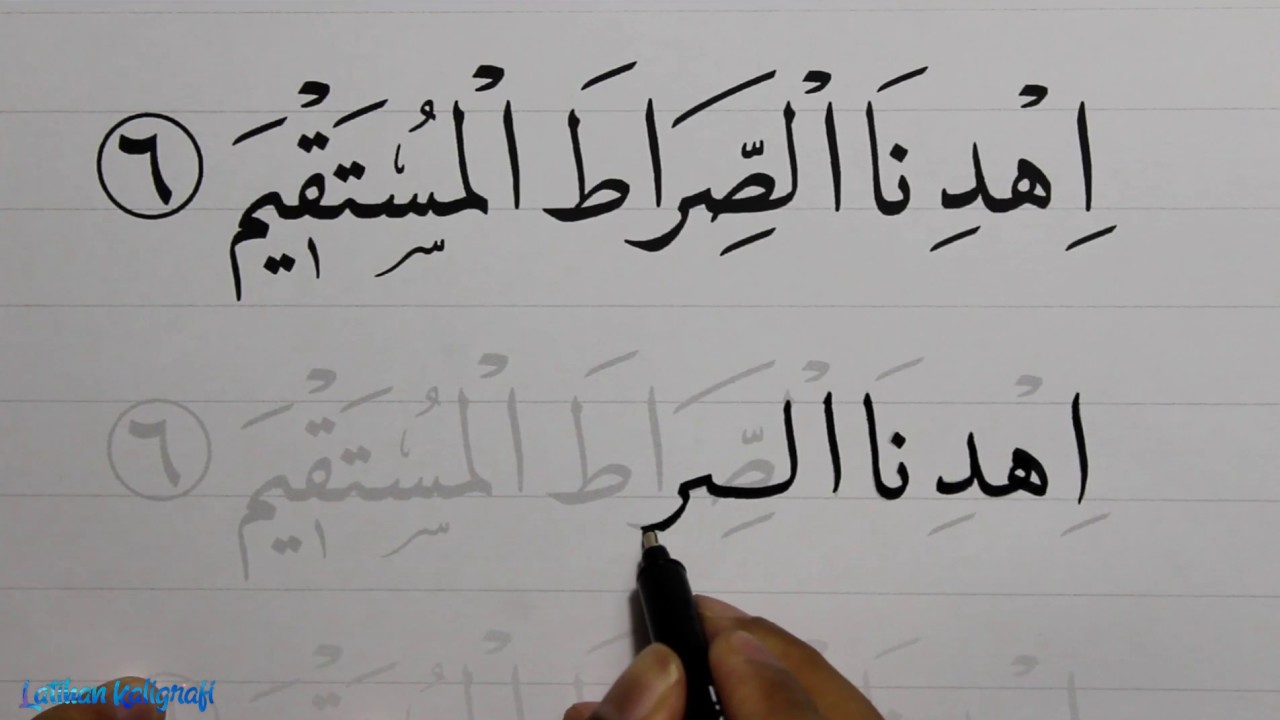 اِهْدِنَا الْصِّرَاطَ الْمُسْتَقِيْمَ ٦
اِهْدِنَا الْصِّرَاطَ الْمُسْتَقِيْمَ ٦
Latihan Kaligrafi